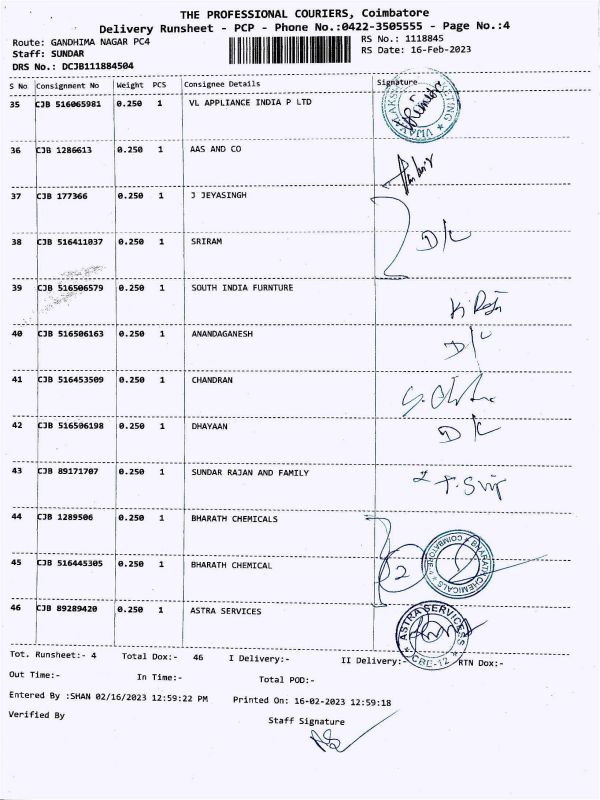 THE PROFESSIONAL COURIERS, Coimbatore
Delivery Runsheet - PCP - Phone No.:0422-3505555 - Page No.:4
Route: GANDHIMA NAGAR PC4
RS No.: 1118845
Staff: SUNDAR
RS Date: 16-Feb-2023
DRS No.: DCJB111884504
S No Consignment No Weight PCS Consignee Details Signature
35 CJB 516065981 0.250 1 VL APPLIANCE INDIA P LTD
36 CJB 1286613 0.250 1 AAS AND CO
37 CJB 177366 0.250 1 J JEYASINGH
38 CJB 516411037 0.250 1 SRIRAM D/L
39 CJB 516506579 0.250 1 SOUTH INDIA FURNTURE
40 CJB 516506163 0.250 1 ANANDAGANESH D/L
41 CJB 516453509 0.250 1 CHANDRAN
42 CJB 516506198 0.250 1 DHAYAAN D/L
43 CJB 89171707 0.250 1 SUNDAR RAJAN AND FAMILY
44 CJB 1289506 0.250 1 BHARATH CHEMICALS
45 CJB 516445305 0.250 1 BHARATH CHEMICAL 2
BHARATH CHEMICALS
COIMBATORE
46 CJB 89289420 0.250 1 ASTRA SERVICES
ASTRA SERVICES
CBE-12
Tot. Runsheet:- 4 Total Dox:- 46 I Delivery:- II Delivery:- RTN Dox:-
Out Time:- In Time:- Total POD:-
Entered By :SHAN 02/16/2023 12:59:22 PM Printed On: 16-02-2023 12:59:18
Verified By Staff Signature